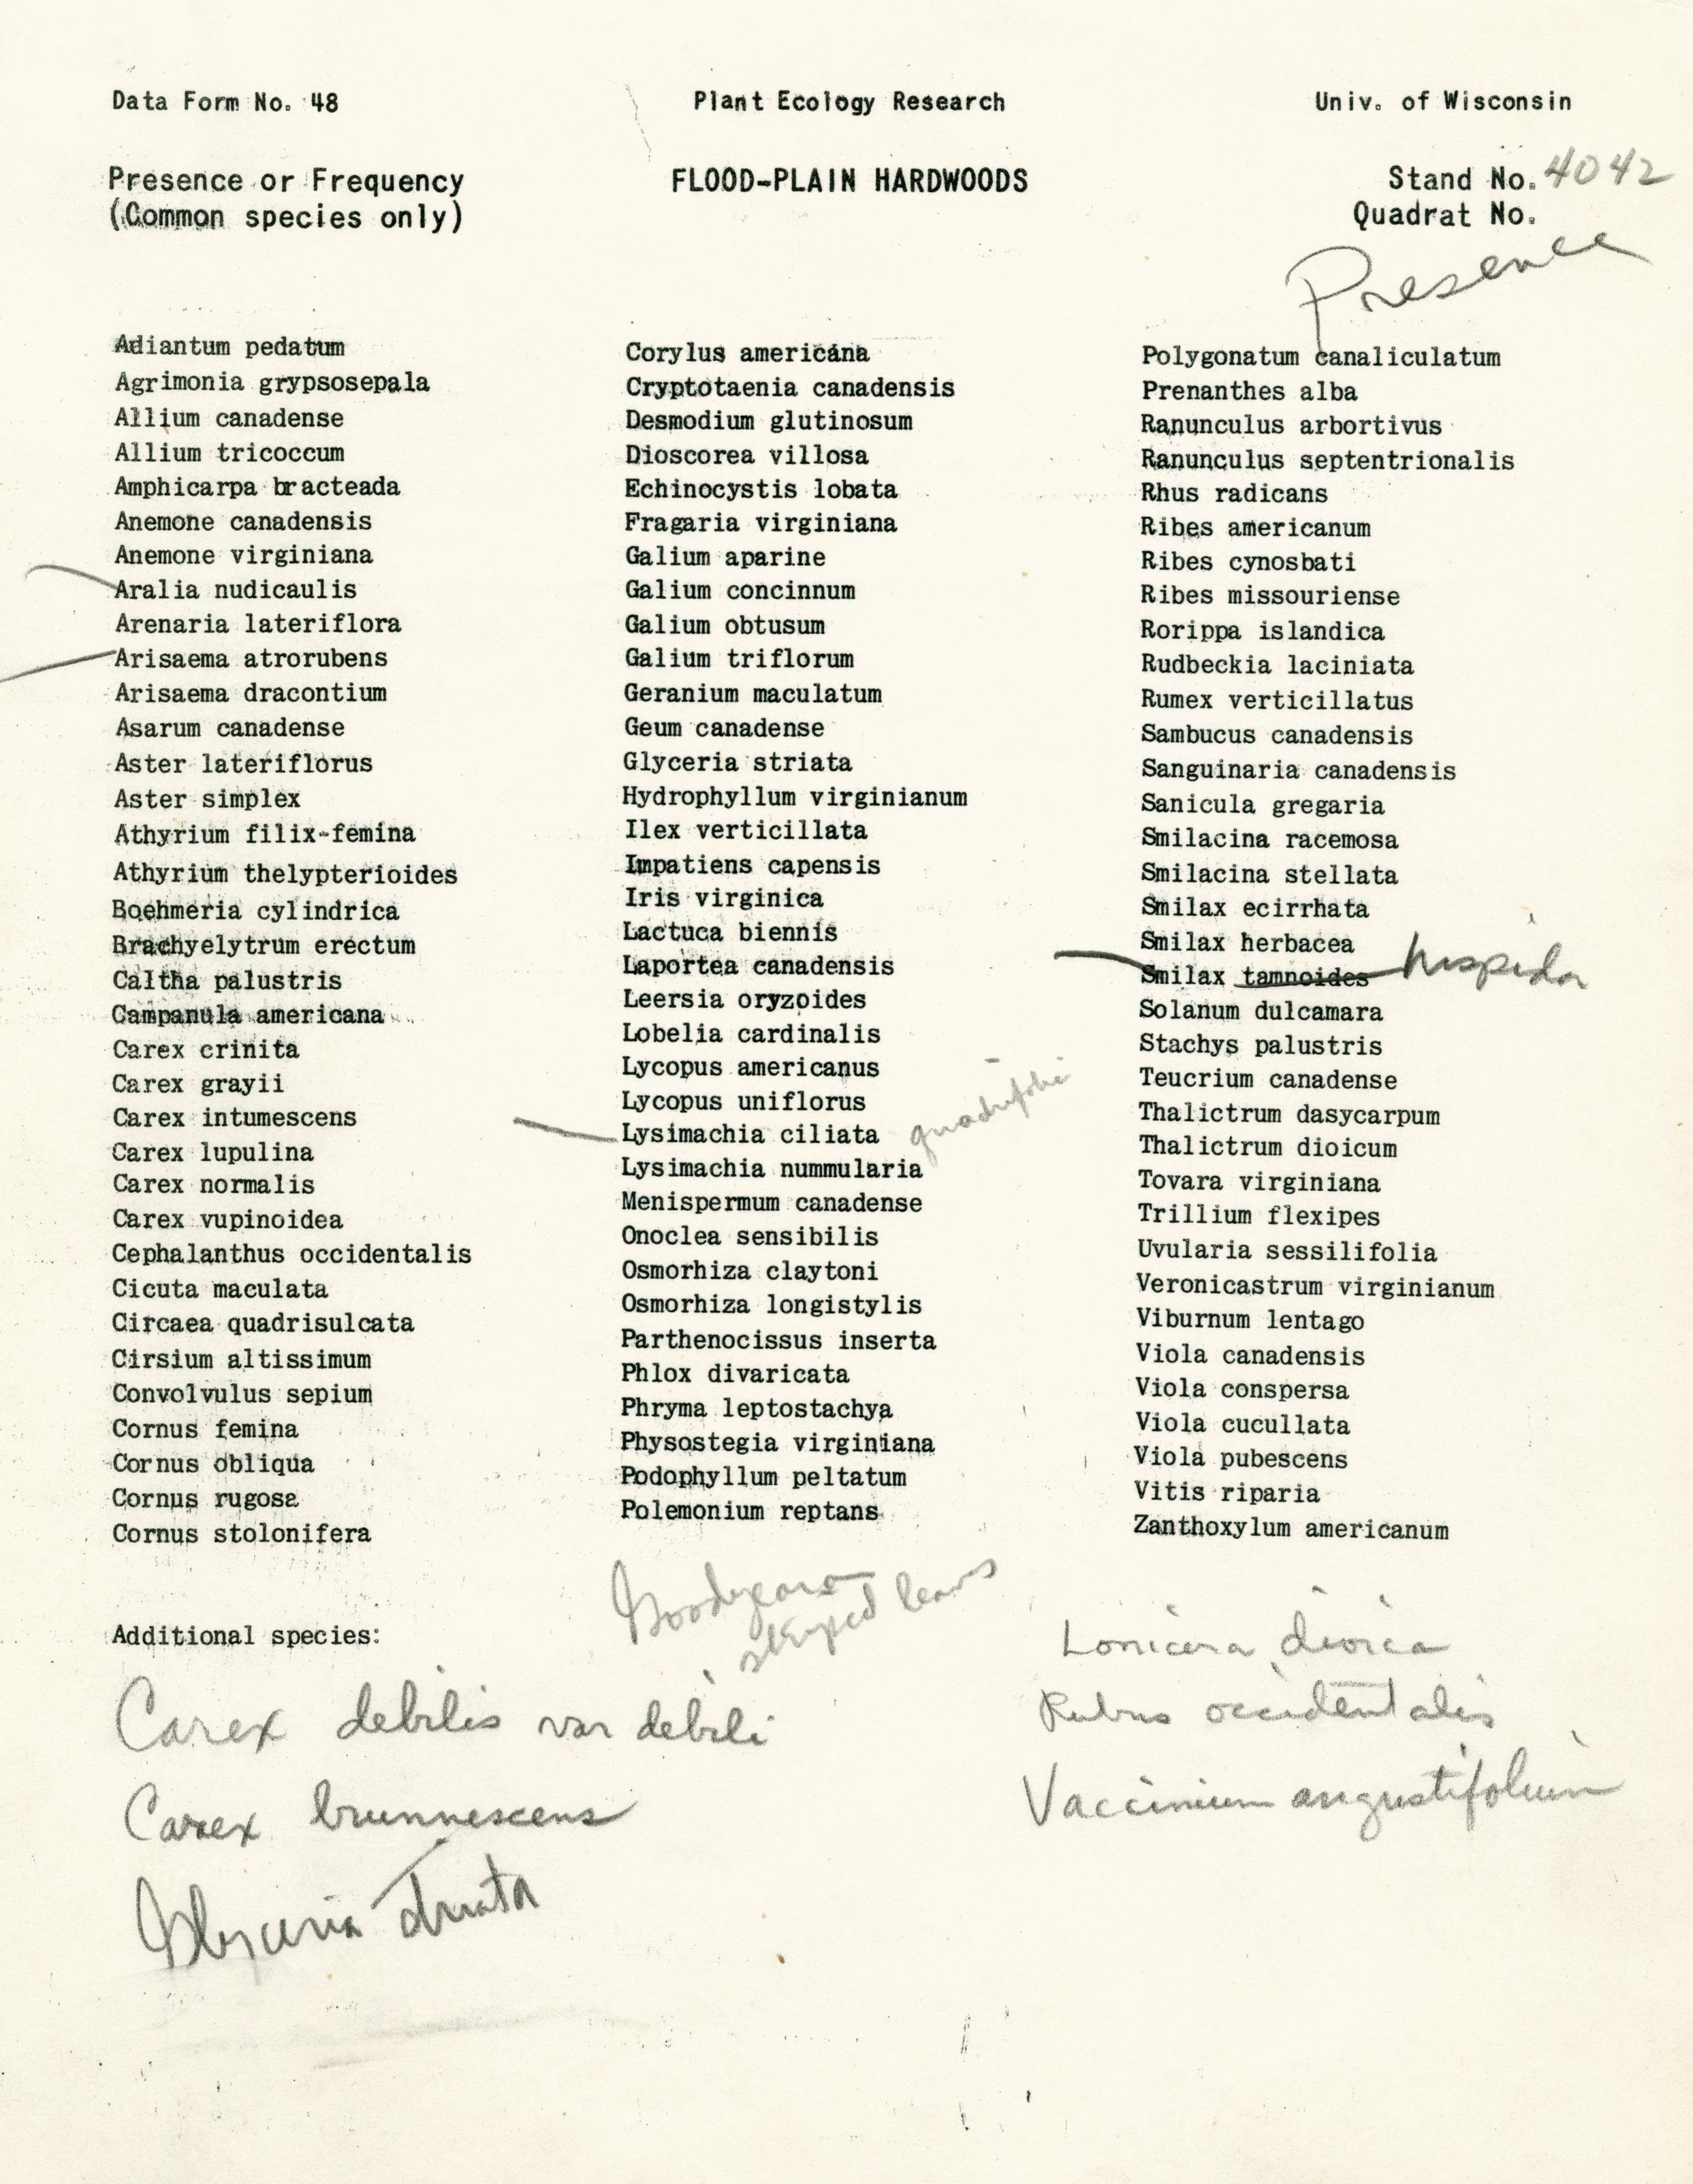 Data Form No. 48
Plant Ecology Research
Univ. of Wisconsin
Presence or Frequency
(Common species only)
FLOOD-PLAIN HARDWOODS
Stand No. 4042
Quadrat No.
Presence
Adiantum pedatum
Agrimonia grypsosepala
Allium canadense
Allium tricoccum
Amphicarpa bracteada
Anemone canadensis
Anemone virginiana
Aralia nudicaulis
Arenaria lateriflora
Arisaema atrorubens
Arisaema dracontium
Asarum canadense
Aster lateriflorus
Aster simplex
Athyrium filix-femina
Athyrium thelypterioides
Boehmeria cylindrica
Brachyelytrum erectum
Caltha palustris
Campanula americana
Carex crinita
Carex grayii
Carex intumescens
Carex lupulina
Carex normalis
Carex vupinoidea
Cephalanthus occidentalis
Cicuta maculata
Circaea quadrisulcata
Cirsium altissimum
Convolvulus sepium
Cornus femina
Cornus obliqua
Cornus rugosa
Cornus stolonifera
Corylus americana
Cryptotaenia canadensis
Desmodium glutinosum
Dioscorea villosa
Echinocystis lobata
Fragaria virginiana
Galium aparine
Galium concinnum
Galium obtusum
Galium triflorum
Geranium maculatum
Geum canadense
Glyceria striata
Hydrophyllum virginianum
Ilex verticillata
Impatiens capensis
Iris virginica
Lactuca biennis
Laportea canadensis
Leersia oryzoides
Lobelia cardinalis
Lycopus americanus
Lycopus uniflorus
Lysimachia ciliata
Lysimachia nummularia
Menispermum canadense
Onoclea sensibilis
Osmorhiza claytoni
Osmorhiza longistylis
Parthenocissus inserta
Phlox divaricata
Phryma leptostachya
Physostegia virginiana
Podophyllum peltatum
Polemonium reptans
Polygonatum canaliculatum
Prenanthes alba
Ranunculus arbortivus
Ranunculus septentrionalis
Rhus radicans
Ribes americanum
Ribes cynosbati
Ribes missouriense
Rorippa islandica
Rudbeckia laciniata
Rumex verticillatus
Sambucus canadensis
Sanguinaria canadensis
Sanicula gregaria
Smilacina racemosa
Smilacina stellata
Smilax ecirrhata
Smilax herbacea
Smilax tamnoides hispida
Solanum dulcamara
Stachys palustris
Teucrium canadense
Thalictrum dasycarpum
Thalictrum dioicum
Tovara virginiana
Trillium flexipes
Uvularia sessilifolia
Veronicastrum virginianum
Viburnum lentago
Viola canadensis
Viola conspersa
Viola cucullata
Viola pubescens
Vitis riparia
Zanthoxylum americanum
Additional species:
Goodyera
striped leaves
Carex debilis var debili
Carex brunnescens
Glyceria striata
Lonicera dioica
Rubus occidentalis
Vaccinium angustifolium